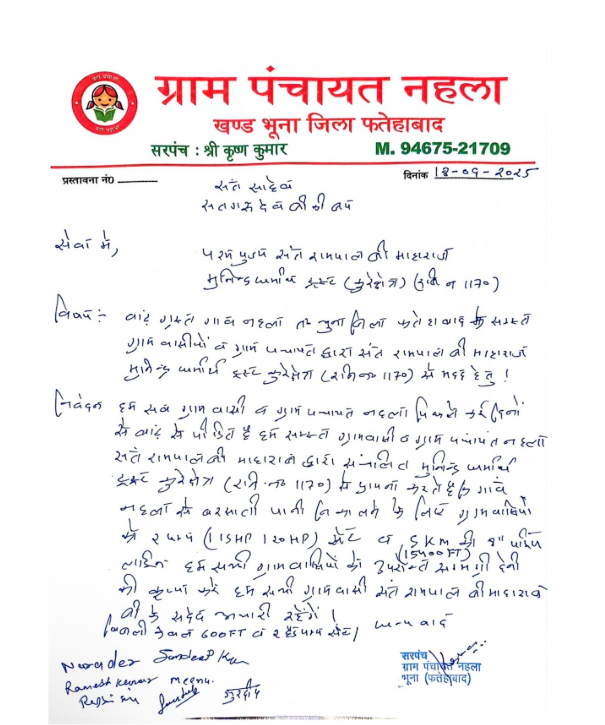 ग्राम पंचायत नहला
खण्ड भूना जिला फतेहाबाद
सरपंच : श्री कृष्ण कुमार M. 94675-21709
प्रस्तावना नं० दिनांक 18-09-2025
सत साहेब
सतगुरु देव जी की जय
सेवा में,
परम पुज्य संत रामपाल जी माहाराज
मुनिन्द्र धर्मार्थ ट्रस्ट (कुरुक्षेत्र) (रजि न 1170)
विषय:- बाढ़ ग्रस्त गांव नहला त० भुना जिला फतेहाबाद के समस्त
ग्राम वासीयों व ग्राम पंचायत द्वारा संत रामपाल जी माहाराज
मुनिन्द्र धर्मार्थ ट्रस्ट कुरुक्षेत्र (रजि न० 1170) से मदद हेतु !
निवेदन हम सब ग्राम वासी व ग्राम पंचायत नहला पिछले कई दिनों
से बाढ़ से पीड़ित है हम समस्त ग्रामवासी व ग्राम पंचायत नहला
संत रामपाल जी माहाराज द्वारा संचालित मुनिन्द्र धर्मार्थ
ट्रस्ट कुरुक्षेत्र (रजि न० 1170) से प्रार्थना करते है कि गांव
नहला से बरसाती पानी निकालने के लिए ग्रामवासियों
को 2 पम्प (15HP 20HP) सेट व 5 KM की 8" पाईप
(15400 FT)
लाईन हम सभी ग्राम वासियों को उपरोक्त सामग्री देने
की कृपा करें हम सभी ग्राम वासी संत रामपाल जी माहाराज
जी के सदैव आभारी रहेंगे !
केबल 600FT व 2 पम्प सेट धन्यवाद
Sandeep Ku
Ramesh Kumar Meenu
गुरदीप
सरपंच
ग्राम पंचायत नहला
भूना (फतेहाबाद)